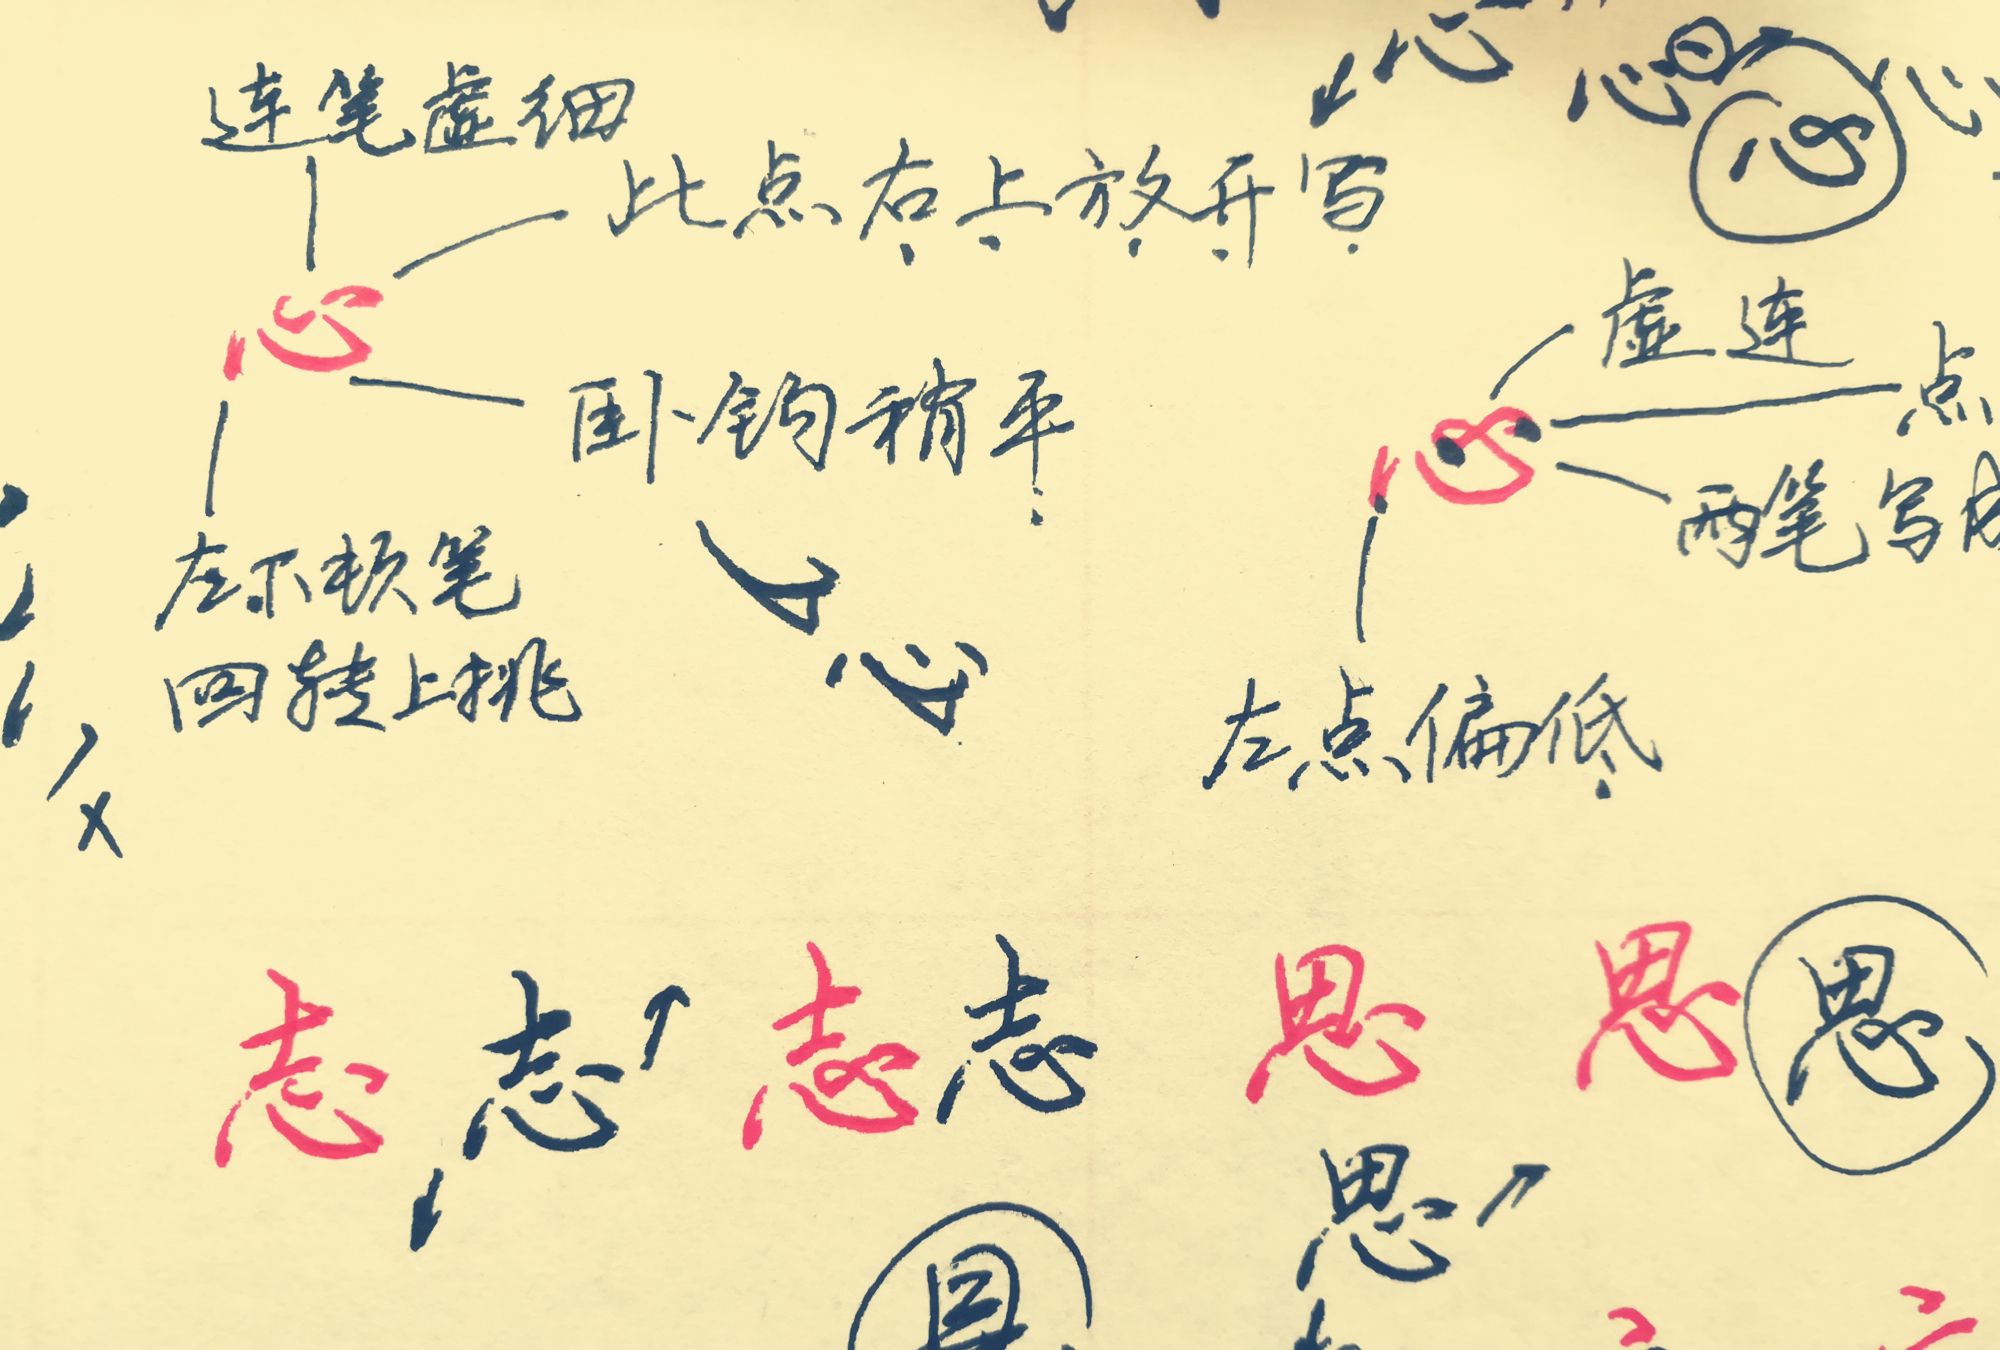 心 心 心 心
连笔虚细
此点右上放开写
心
卧钩稍平
左下顿笔
回转上挑
心
虚连
点
心
两笔写
左点偏低
志 志 志 志
思 思 思
思